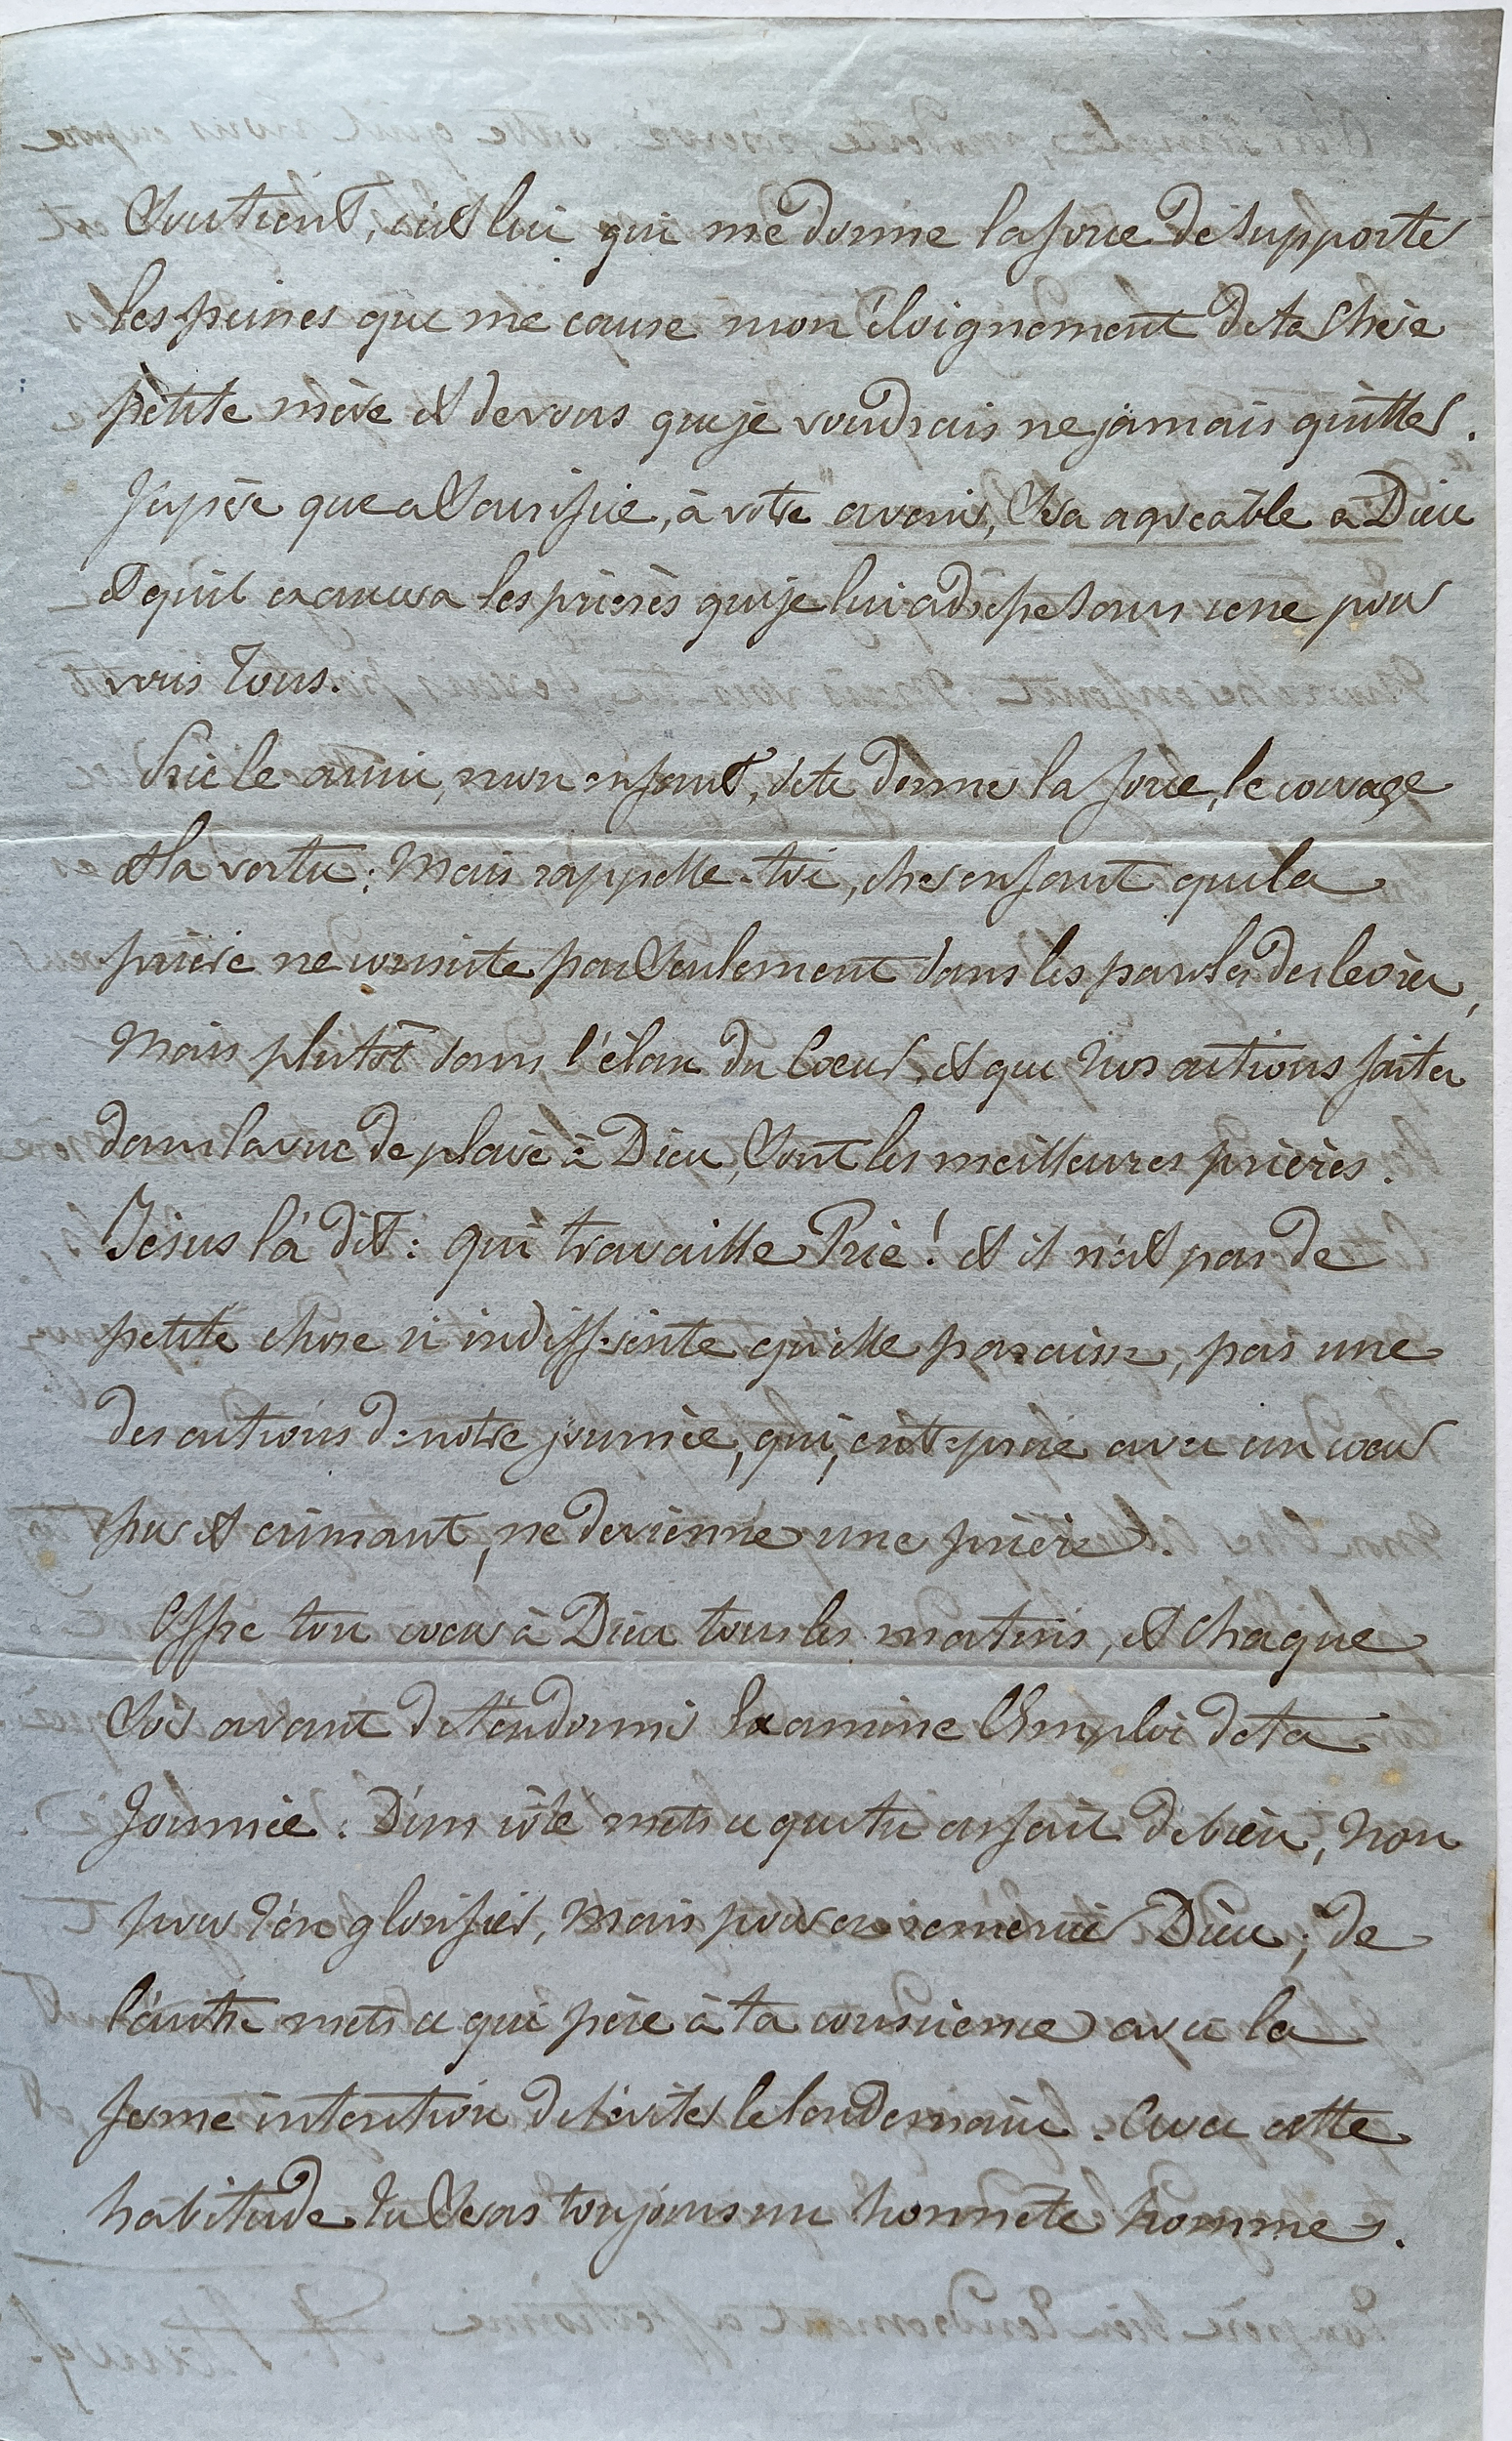 Soutient, c'est lui qui me donne la force de supporter
les peines que me cause mon éloignement de ta chère
petite mère et de vous que je voudrais ne jamais quitter.
J'espère que ce sacrifice, à votre avenir, sera agréable à Dieu
et qu'il exaucera les prières que je lui adresse sans cesse pour
vous tous.
Prie le aussi, mon enfant, de te donner la force, le courage
et la vertu; Mais rappelle-toi, cher enfant que la
prière ne consiste pas seulement dans les paroles des lèvres,
Mais plutôt dans l'élan du Coeur, et que nos actions faites
dans la vue de plaire à Dieu, sont les meilleures prières.
Jésus l'a dit: qui travaille Prie! et il n'est pas de
petite chose si indifférente qu'elle paraisse, pas une
des actions de notre journée, qui, entreprise avec un coeur
pur et aimant, ne devienne une prière.
Offre ton coeur à Dieu tous les matins, et chaque
soir avant de t'endormir Examine l'Emploi de ta
Journée. D'un côté mets ce que tu as fait de bien, non
pour t'en glorifier, mais pour en remercier Dieu; de
l'autre mets ce qui pèse à ta conscience avec la
ferme intention de l'éviter le lendemain. Avec cette
habitude tu seras toujours un honnête homme.